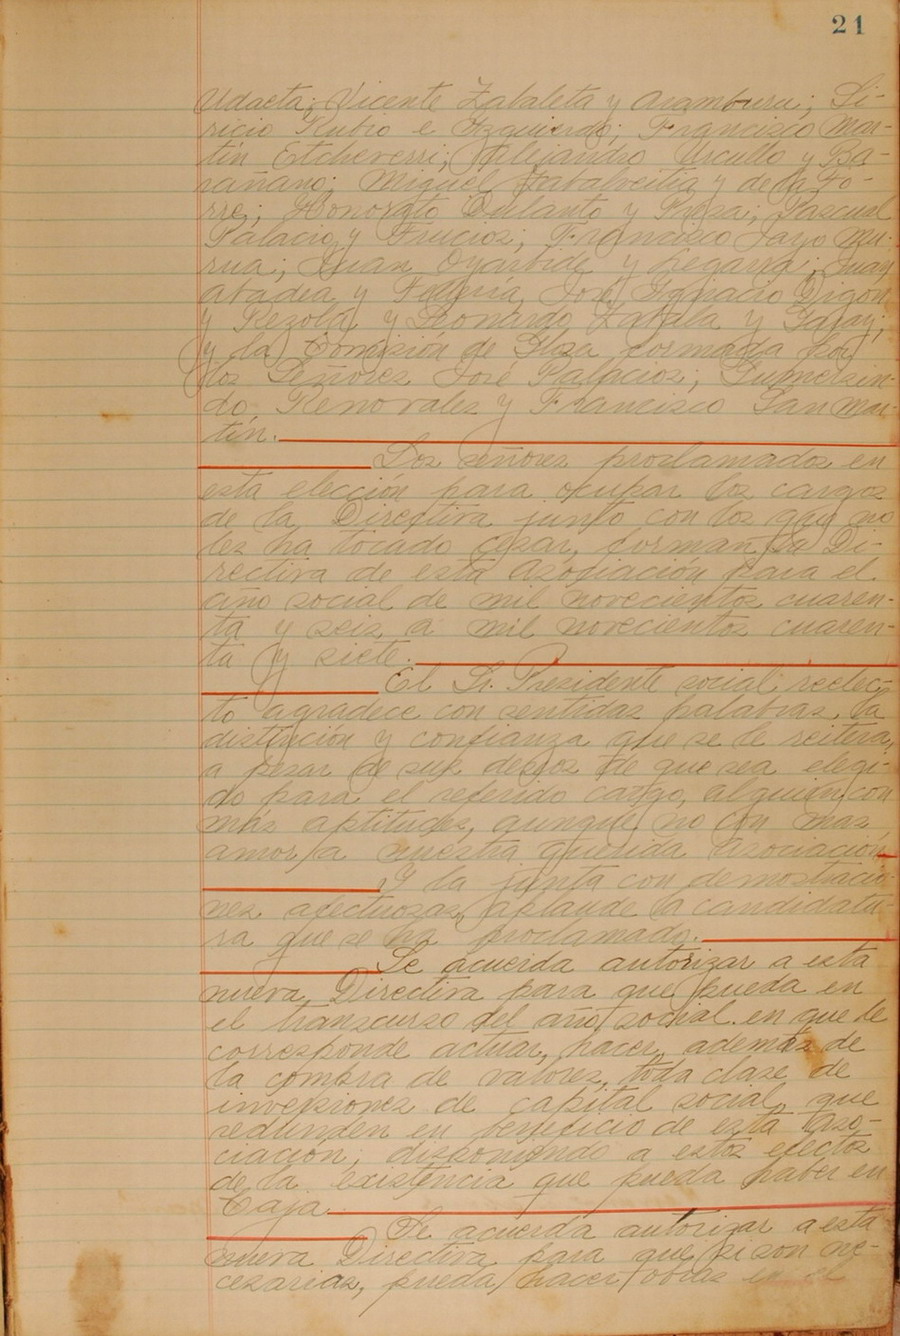 21
Udaeta; Vicente Zabaleta y Aramburu; Si-
ricio Rubio e Izquierdo; Francisco Mar-
tín Etcheverri; Alejandro Urcullo y Ba-
rañano; Miguel Zabalveitia y de la To-
rre; Honorato Dulanto y Presa; Pascual
Palacio y Trucios; Francisco Jayo Mu-
rua; Juan Oyarbide y Legarra; Juan
Abadea y José Ignacio Digón
y Rezola y Leonardo Zabala y Garay;
y la Comisión de Glosa formada por
los Señores José Palacios; Gumersin-
do Renovales y Francisco San Mar-
tín.
Los señores proclamados en
esta elección para ocupar los cargos
de la Directiva junto con los que no
les ha tocado cesar, forman la Di-
rectiva de esta Asociación para el
año social de mil novecientos cuaren-
ta y seis a mil novecientos cuaren-
ta y siete.
El Sr. Presidente social reelec-
to agradece con sentidas palabras, la
distinción y confianza que se le reitera,
a pesar de sus deseos de que sea elegi-
do para el referido cargo, alguien con
más aptitudes, aunque no con mas
amor a nuestra querida Asociación
Y la junta con demostracio-
nes afectuosas, aplaude la candidatu-
ra que se ha proclamado.
Se acuerda autorizar a esta
nueva Directiva para que pueda en
el transcurso del año social en que le
corresponde actuar, hacer, además de
la compra de valores, toda clase de
inversiones de capital social, que
redunden en beneficio de esta Aso-
ciación; disponiendo a estos efectos
de la existencia que pueda haber en
Caja.
Se acuerda autorizar a esta
nueva Directiva para que, si son ne-
cesarias, pueda hacer obras en el